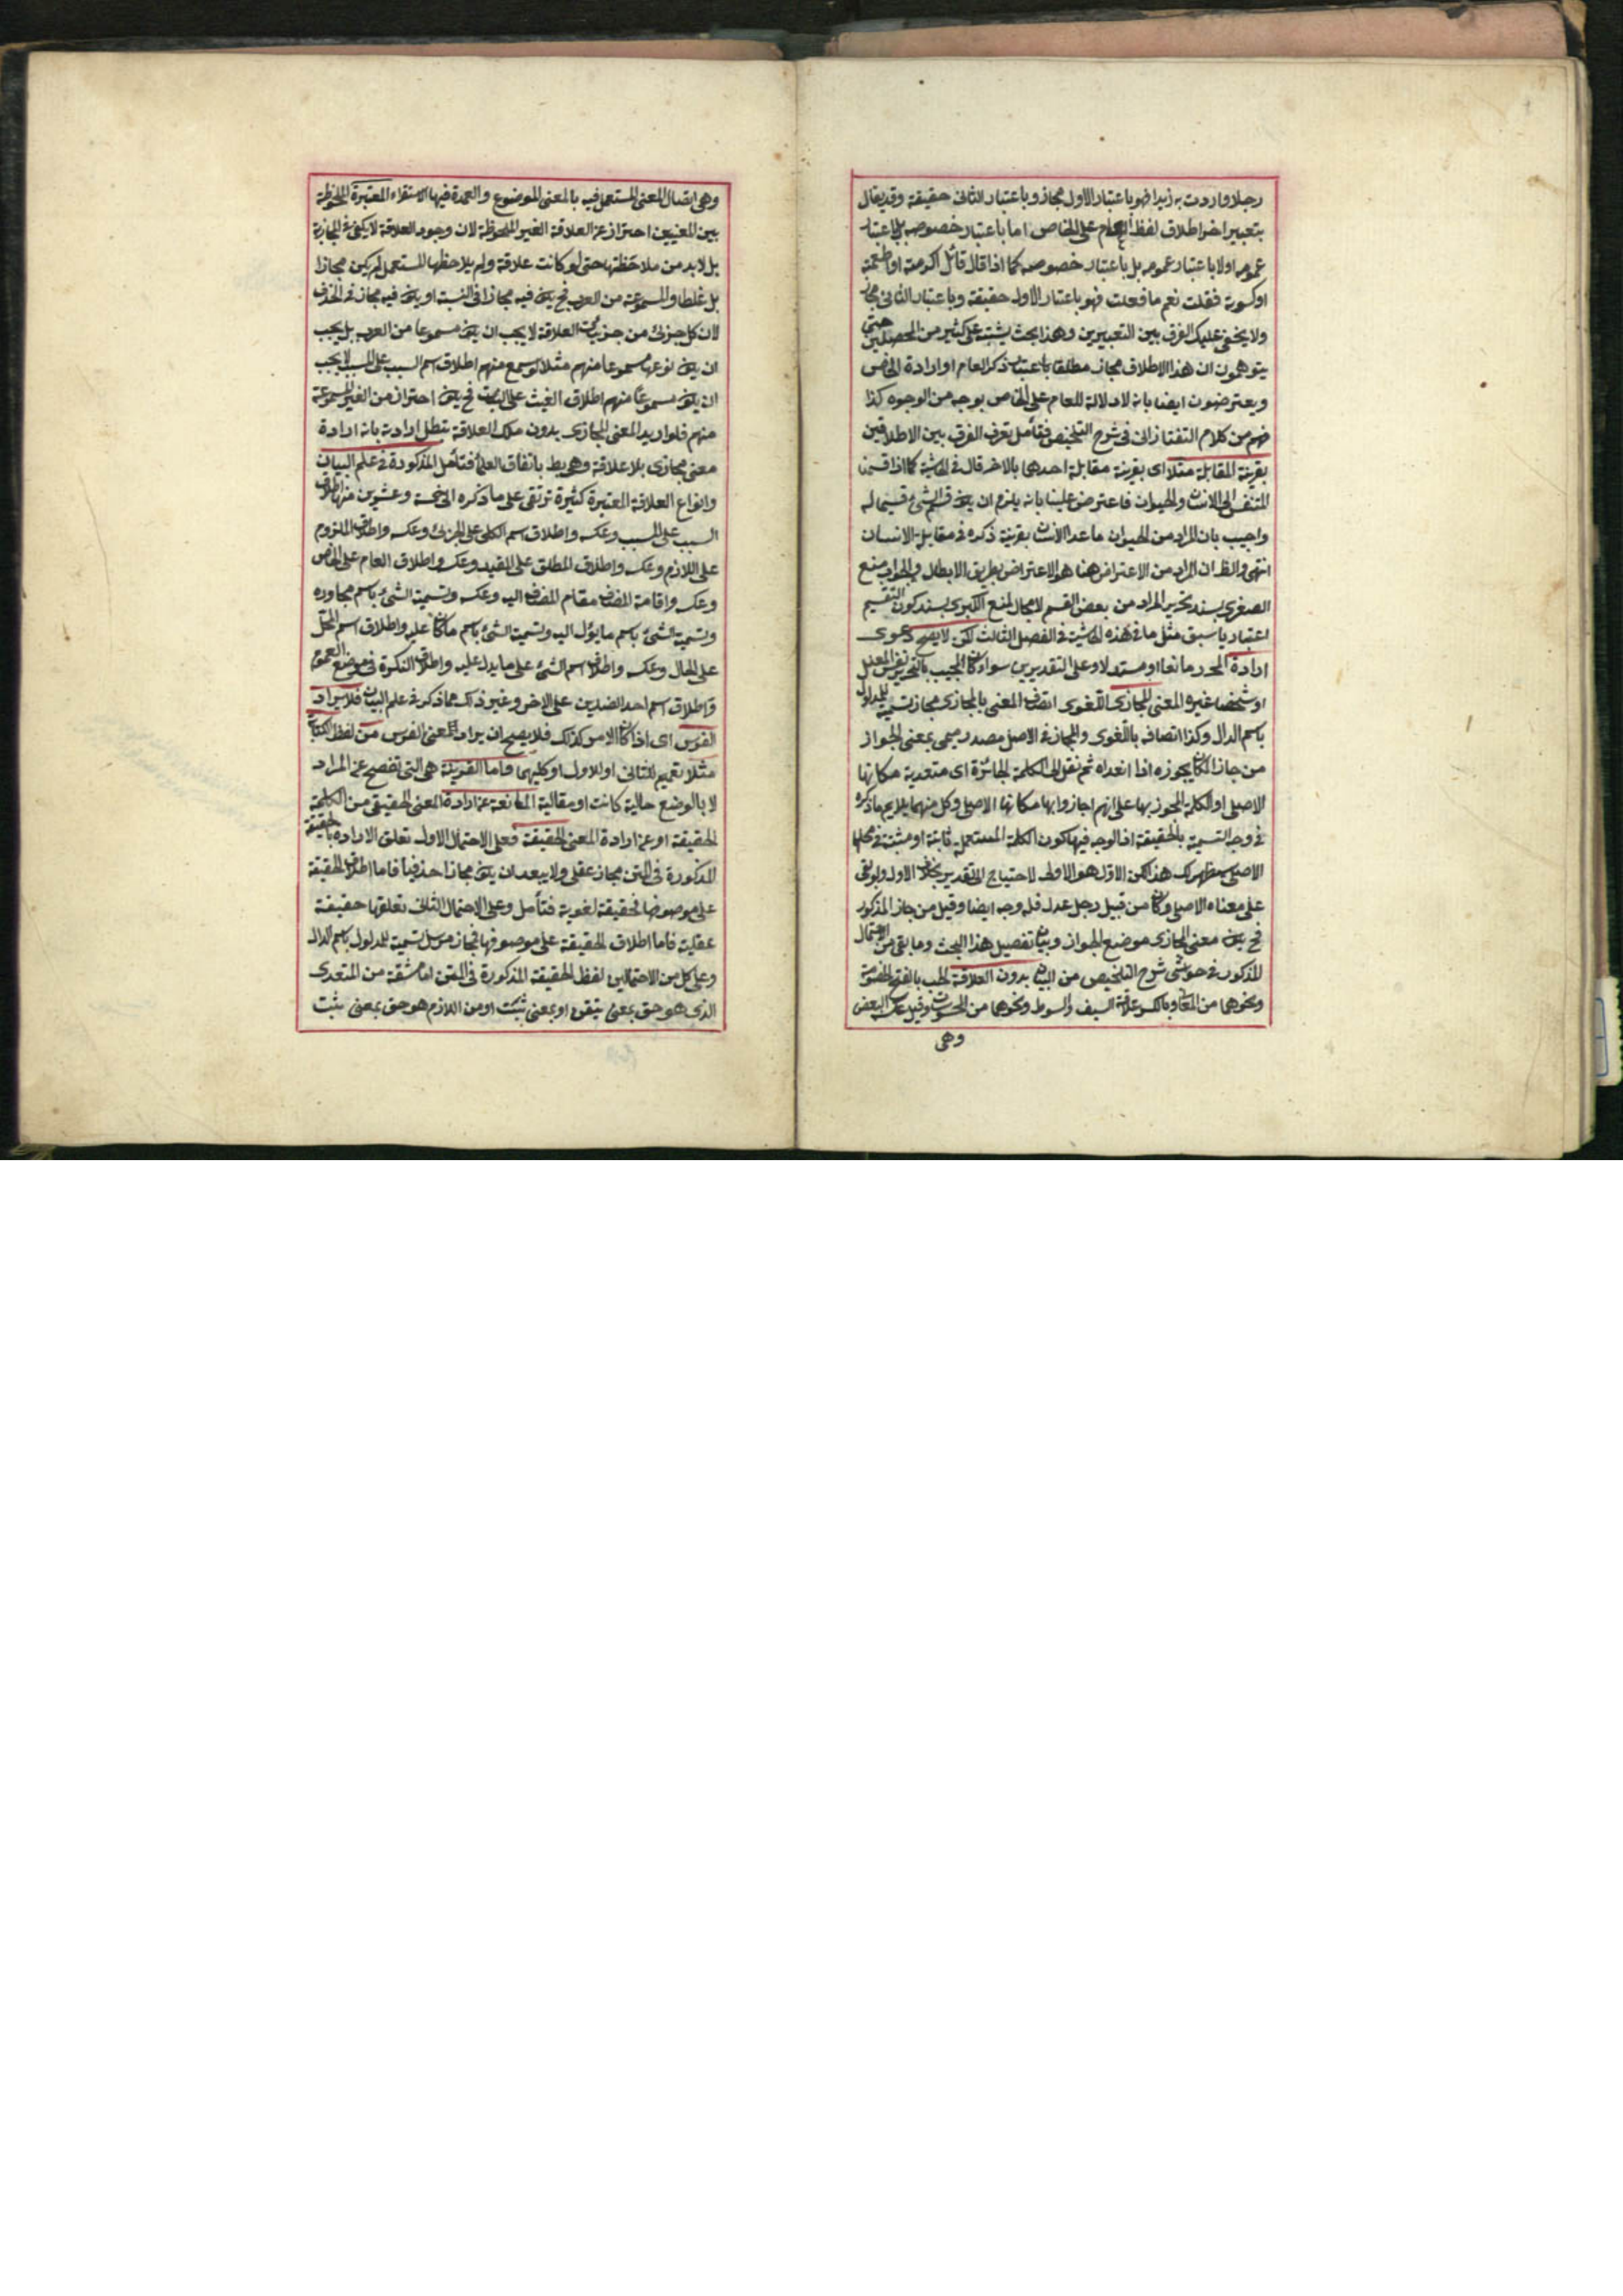 رجلا واردت به زيدا فهو باعتبار الاول مجاز وباعتبار الثانى حقيقة وقد يقال
بتعبير اخر اطلاق لفظ العام على الخاص اما باعتبار خصوصه بل باعتبار
عمومه اولا باعتبار عمومه بل باعتبار خصوصه كما اذا قال قائل اكرمته او اطعمته
او كسوته فقلت نعم ما فعلت فهو باعتبار الاول حقيقة وباعتبار الثانى مجاز
ولا يخفى عليك الفرق بين التعبيرين وهذا بحث يشتبه على كثير من المحصلين حتى
يتوهمون ان هذا الاطلاق مجاز مطلقا باعتبار ذكر العام او ارادة الخاص
ويعترضون ايضا بانه لا دلالة للعام على الخاص بوجه من الوجوه كذا
فهم من كلام التفتازانى فى شرح التلخيص فتأمل تعرف الفرق بين الاطلاقين
بقرينة المقابلة مثلا اى بقرينة مقابلة احدهما بالاخر قال فى الحاشية كما اذا قسمنا
المتنفس الى الانسان والحيوان فاعترض علينا بانه يلزم ان يكون قسم الشئ قسيما له
واجيب بان المراد من الحيوان ما عدا الانسان بقرينة ذكره فى مقابلة الانسان
انتهى والظ ان المراد من الاعتراض هنا هو الاعتراض بطريق الابطال والجواب منع
الصغرى بسند تحرير المراد من بعض القسم لا مجال لمنع الكبرى بسند كون التقسيم
اعتباريا سبق مثل ما فى هذه الحاشية فى الفصل الثالث لكن لا يصح دعوى
ارادة المحرر مانعا او مستدلا وعلى التقديرين سواء كان المجيب بالتحرير نفس المعلل
او شخصا غيره المعنى المجازى اللغوى اتصاف المعنى بالمجازى مجاز تسمية للمدلول
باسم الدال وكذا اتصافه باللغوى والمجاز فى الاصل مصدر ميمى بمعنى الجواز
من جاز المكان يجوزه اذا تعداه ثم نقل الى الكلمة الجائزة اى متعدية مكانها
الاصلى او الكلمة المجوز بها على انهم اجازوا بها مكانها الاصلى وكل منهما يلايم ما ذكره
فى وجه التسمية بالحقيقة اذ الوجه فيها كون الكلمة المستعملة ثابتة او مثبتة فى محلها
الاصلى سيظهر لك هذا لكن الاول هو الاولى لاحتياج الى تقدير بخلاف الاول ولو بقى
على معناه الاصلى وكان من قبيل رجل عدل فله وجه ايضا وقيل من جاز المذكور
فح يكون معنى المجازى موضع الجواز وبيان تفصيل هذا البحث وما بقى من الاحتمال
المذكور فى حواشى شرح التلخيص من البيان بدون العلاقة الحب بالفتح الخصومة
ونحوهما من المعانى وبالكسر علاقة السيف والسوط ونحوهما من المحسوسات وقيل عكس البعض
وهى
وهى اتصال المعنى المستعمل فيه بالمعنى الموضوع والعمدة فيها الاستقراء المعتبرة الملحوظة
بين المعنيين احتراز عن العلاقة الغير الملحوظة لان وجود العلاقة لا يكفى فى المجازية
بل لابد من ملاحظتها حتى لو كانت علاقة ولم يلاحظها المستعمل لم يكن مجازا
بل غلطا والمسموعة من العرب فح يكون فيه مجازا فى النسبة او يكون فيه مجاز فى الحذف
لان كل جزئى من جزئيات العلاقة لا يجب ان يكون مسموعا من العرب بل يجب
ان يكون نوعها مسموعا منهم مثلا لو سمع منهم اطلاق اسم السبب على المسبب لا يجب
ان يكون مسموعا منهم اطلاق الغيث على النبات فح يكون احتراز من الغير المسموعة
منهم فلو اريد المعنى المجازى بدون تلك العلاقة تبطل ارادته بانه ارادة
معنى مجازى بلا علاقة وهو بط باتفاق العلماء فتأمل المذكورة فى علم البيان
وانواع العلاقة المعتبرة كثيرة ترتقى على ما ذكره الى خمسة وعشرين منها اطلاق
السبب على المسبب وعكسه واطلاق اسم الكلى على الجزئى وعكسه واطلاق الملزوم
على اللازم وعكسه واطلاق المطلق على المقيد وعكسه واطلاق العام على الخاص
وعكسه واقامة المضاف مقام المضاف اليه وعكسه وتسمية الشئ باسم مجاوره
وتسمية الشئ باسم ما يؤل اليه وتسمية الشئ باسم ما كان عليه واطلاق اسم المحل
على الحال وعكسه واطلاق اسم الشئ على ما يدل عليه واطلاق النكرة فى موضع العموم
واطلاق اسم احد الضدين على الاخر وغير ذلك مما ذكر فى علم البيان فلا يراد
الفرس اى اذا كان الامر كذلك فلا يصح ان يراد المعنى الفرس من لفظ الكتاب
مثلا تعميم للثانى او للاول او كليهما واما القرينة هى التى تفصح عن المراد
لا بالوضع حالية كانت او مقالية المانعة عن ارادة المعنى الحقيقى من الكلمة
الحقيقة او عن ارادة المعنى الحقيقة فعلى الاحتمال الاول تعلق الارادة بالحقيقة
المذكورة فى المتن مجاز عقلى ولا يبعد ان يكون مجازا حذفيا فاما اطلاق الحقيقة
على موصوفها فحقيقة لغوية فتأمل وعلى الاحتمال الثانى تعلقها حقيقة
عقلية فاما اطلاق الحقيقة على موصوفها فمجاز مرسل تسمية للمدلول باسم الدال
وعلى كل من الاحتمالين لفظ الحقيقة المذكورة فى المتن اما مشقة من المتعدى
الذى هو حق بمعنى تيقن او بمعنى ثبت او من اللازم هو حق بمعنى ثبت